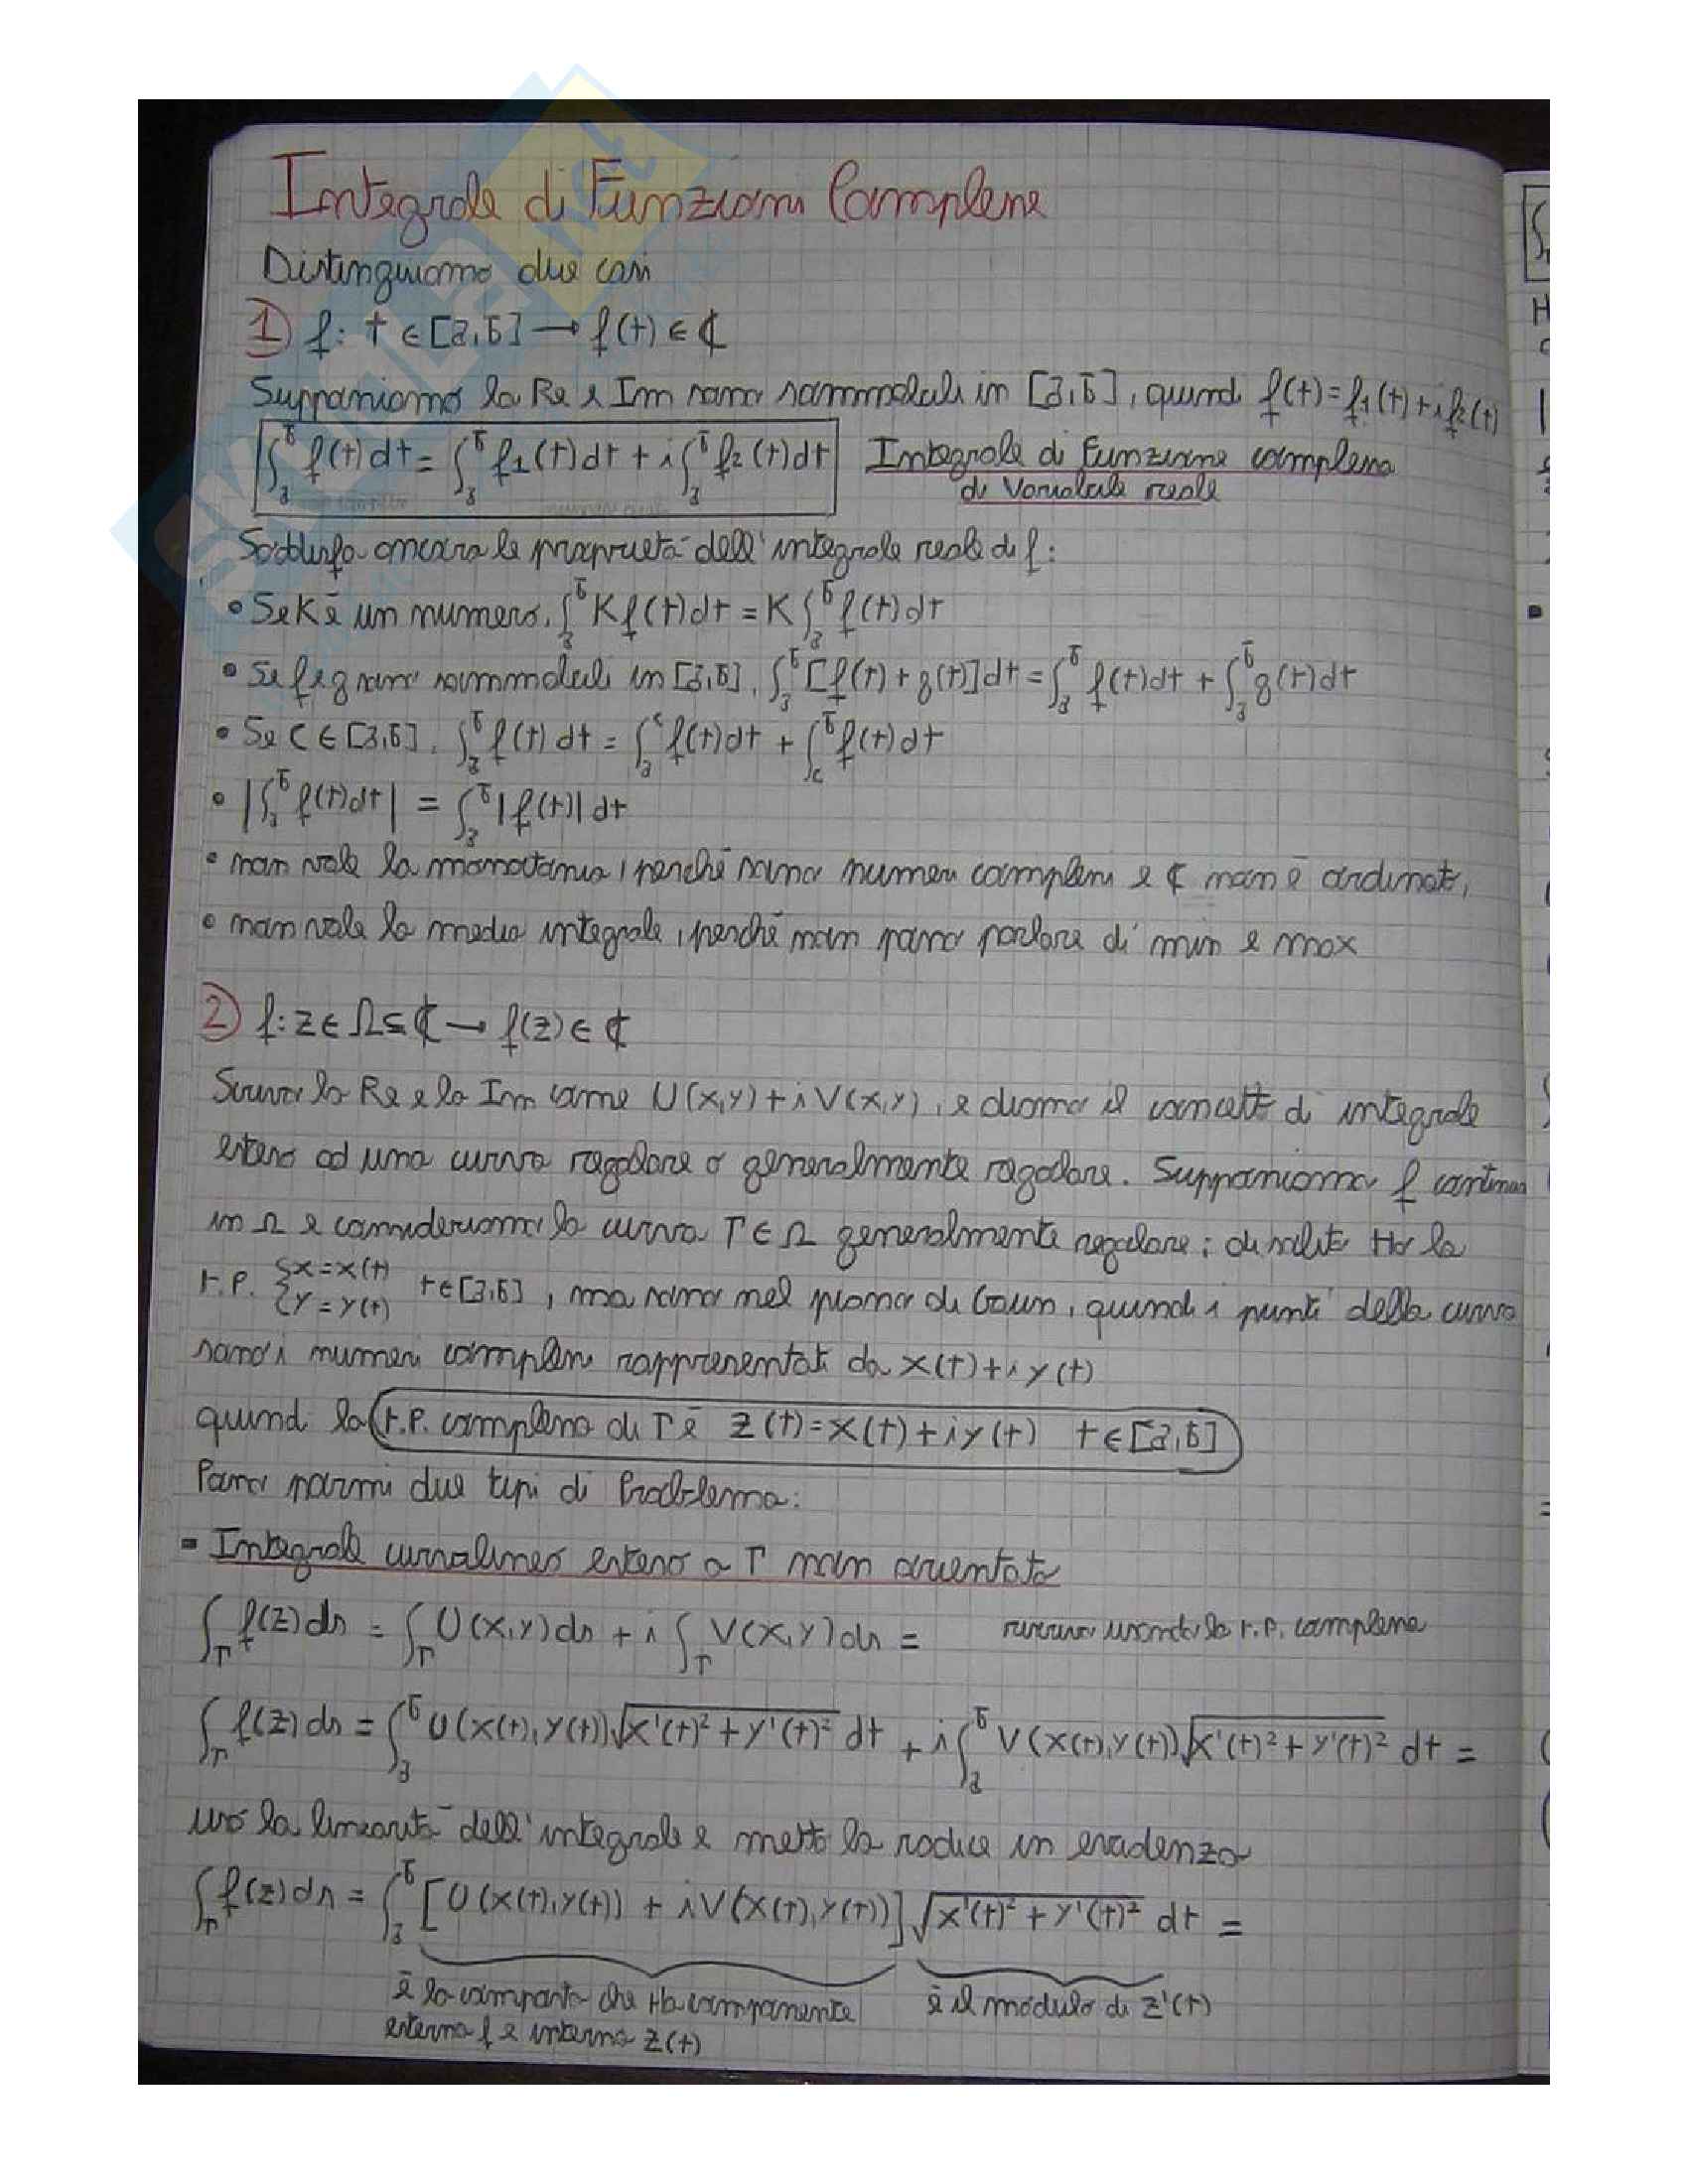 Integrale di Funzioni Complesse
Distinguiamo due casi
1) f: t ∈ [a,b] → f(t) ∈ ℂ
Supponiamo la Re e Im sono sommabili in [a,b], quindi f(t)=f₁(t)+if₂(t)
∫ₐᵇ f(t)dt = ∫ₐᵇ f₁(t)dt + i∫ₐᵇ f₂(t)dt Integrale di Funzione complessa
di Variabile reale
Soddisfa ancora le proprietà dell'integrale reale di f:
• Se K è un numero, ∫ₐᵇ Kf(t)dt = K∫ₐᵇ f(t)dt
• Se f e g sono sommabili in [a,b], ∫ₐᵇ [f(t)+g(t)]dt = ∫ₐᵇ f(t)dt + ∫ₐᵇ g(t)dt
• Se c ∈ [a,b], ∫ₐᵇ f(t)dt = ∫ₐᶜ f(t)dt + ∫꜀ᵇ f(t)dt
• |∫ₐᵇ f(t)dt| = ∫ₐᵇ |f(t)|dt
• non vale la monotonia, perché sono numeri complessi e ℂ non è ordinato,
• non vale la media integrale, perché non posso parlare di min e max
2) f: z ∈ Ω ⊆ ℂ → f(z) ∈ ℂ
Scrivo la Re e la Im come U(x,y)+iV(x,y), e diamo il concetto di integrale
esteso ad una curva regolare o generalmente regolare. Supponiamo f continua
in Ω e consideriamo la curva Γ ∈ Ω generalmente regolare; di solito Ho la
r.p. {x=x(t) t∈[a,b], ma sono nel piano di Gauss, quindi i punti della curva
{y=y(t)
sono i numeri complessi rappresentati da x(t)+iy(t)
quindi la r.p. complessa di Γ è z(t)=x(t)+iy(t) t∈[a,b]
Posso pormi due tipi di Problema:
- Integrale curvilineo esteso a Γ non orientata
∫_Γ f(z)ds = ∫_Γ U(x,y)ds + i∫_Γ V(x,y)ds = riscrivo usando la r.p. complessa
∫_Γ f(z)ds = ∫ₐᵇ U(x(t),y(t))√(x'(t)²+y'(t)²) dt + i∫ₐᵇ V(x(t),y(t))√(x'(t)²+y'(t)²) dt =
uso la linearità dell'integrale e metto la radice in evidenza
∫_Γ f(z)ds = ∫ₐᵇ [U(x(t),y(t)) + iV(x(t),y(t))]√(x'(t)²+y'(t)²) dt =
è la composta che Ha componente è il modulo di z'(t)
esterna f e interna z(t)